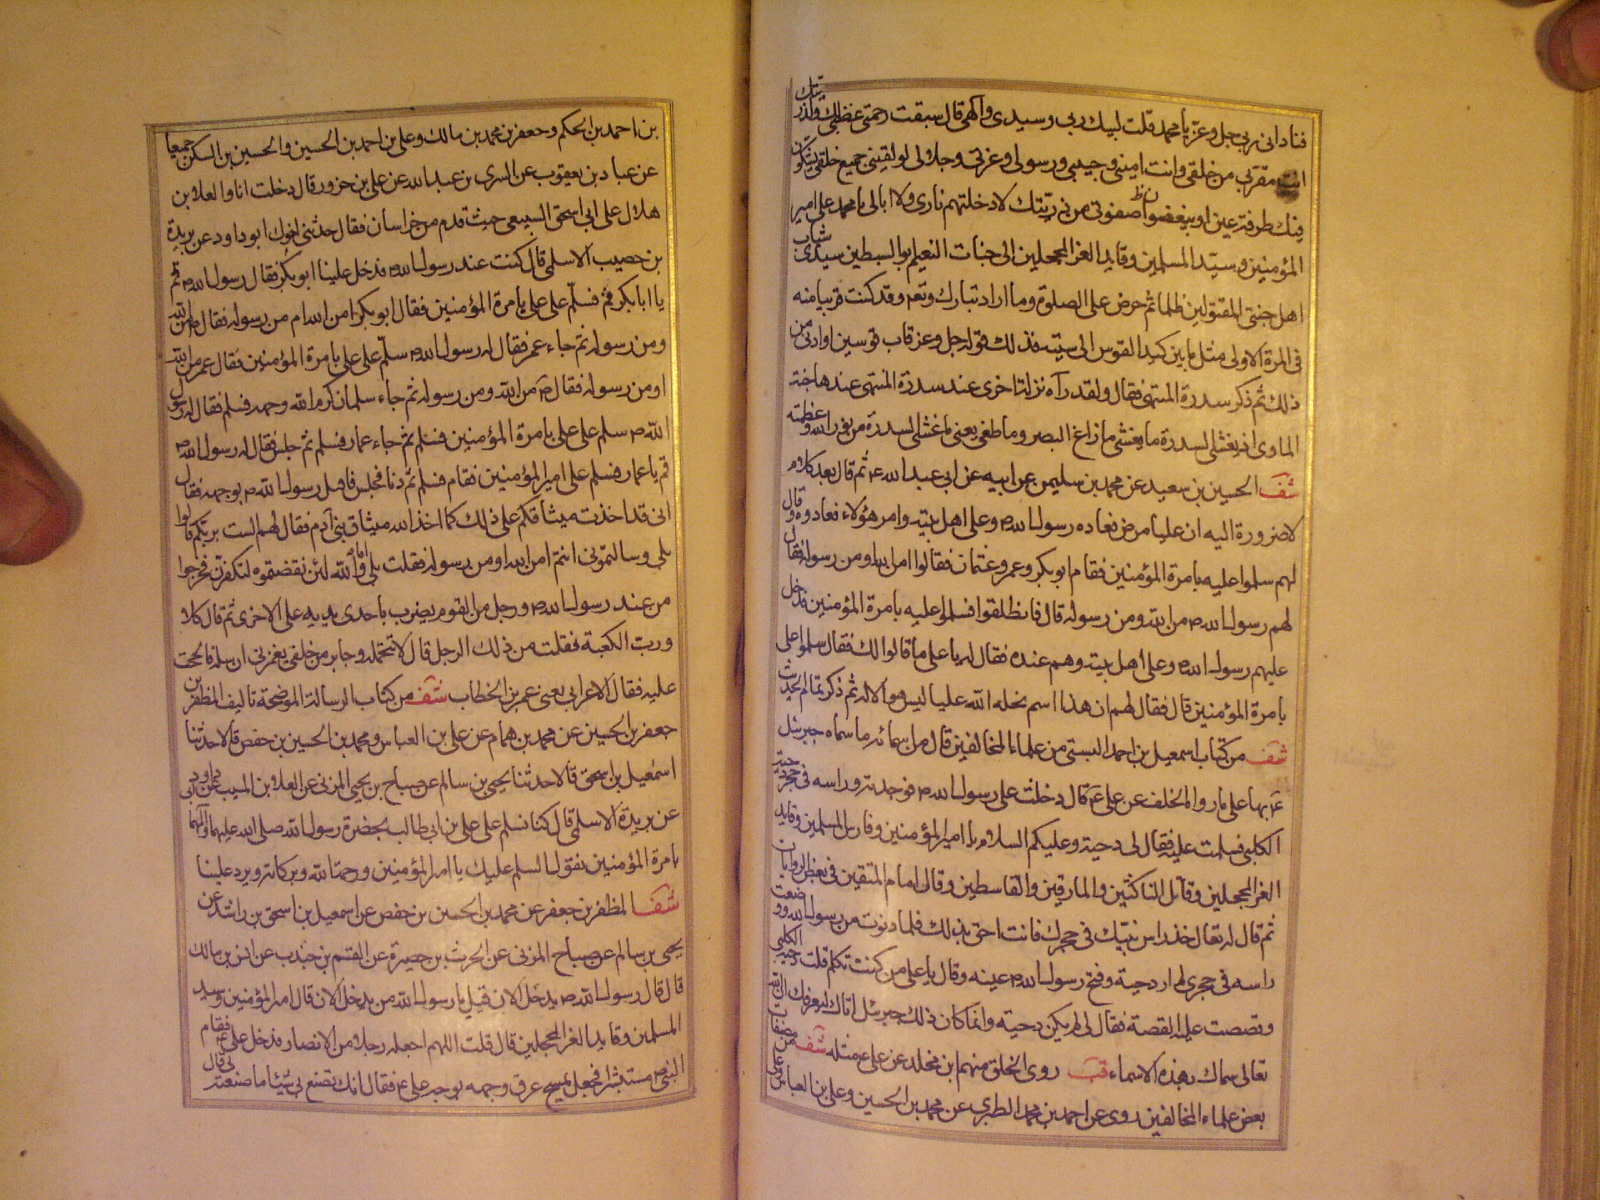 فناداني ربي جل وعز يا محمد قلت لبيك ربي وسيدي والهي قال سبقت رحمتي غضبي لك ولذريتك
انت مقربي من خلقي وانت اميني وحبيبي ورسولي وعزتي وجلالي لو لقيني جميع خلقي يشكون
فيك طرفة عين او يبغضون صفوتي من ذريتك لادخلتهم ناري ولا ابالي يا محمد علي امير
المؤمنين وسيد المسلمين وقايد الغر المحجلين الى جنات النعيم ابو السبطين سيدي شباب
اهل جنتي المقتولين ظلما ثم حرض على الصلوة وما اراد تبارك وتعم وقد كنت قريبا منه
في المرة الاولى مثل ما بين كبد القوس الى سيته فذلك قوله جل وعز قاب قوسين او ادنى من
ذلك ثم ذكر سدرة المنتهى فقال ولقد رآه نزلة اخرى عند سدرة المنتهى عندها جنة
الماوى اذ يغشى السدرة ما يغشى ما زاغ البصر وما طغى يعني ما غشى السدرة من نور الله وعظمته
شف الحسين بن سعيد عن محمد بن سليمن عن ابيه عن ابي عبد الله ع ثم قال بعد كلام
لا ضرورة اليه ان عليا مرض فعاده رسول الله ص وعلى اهل بيته وامر هؤلاء فعادوه وقال
لهم سلموا عليه بامرة المؤمنين فقام ابو بكر وعمر وعثمان فقالوا امن الله او من رسوله فقال
لهم رسول الله ص من الله ومن رسوله قال فانطلقوا فسلموا عليه بامرة المؤمنين فدخل
عليهم رسول الله ص وعلى اهل بيته وهم عنده فقال له يا علي ما قالوا لك فقال سلموا علي
بامرة المؤمنين قال فقال لهم ان هذا اسم نحله الله عليا ليس هو الا له ثم ذكر تمام الحديث
شف من كتاب اسمعيل بن احمد البستي من علماء المخالفين قال من اسمائه ما سماه جبرئيل
ع بها على ما رواه الخلف عن علي ع قال دخلت على رسول الله ص فوجدته وراسه في حجر دحية
الكلبي فسلمت عليه فقال لي دحية وعليكم السلام يا امير المؤمنين وفارس المسلمين وقايد
الغر المحجلين وقاتل الناكثين والمارقين والقاسطين وقال امام المتقين في بعض الروايات
ثم قال له تعال خذ راس نبيك في حجرك فانت احق بذلك فلما دنوت من رسول الله ووضعت
راسه في حجري لم ار دحية وفتح رسول الله ص عينه وقال يا علي من كنت تكلم قلت دحية الكلبي
وقصصت عليه القصة فقال لي لم يكن دحية وانما كان ذلك جبرئيل اتاك ليعرفك ان الله
تعالى سماك بهذه الاسماء قب روى الخلق منهم ابن مخلد عن علي ع مثله شف من مصنفات
بعض علماء المخالفين روى عن احمد بن محمد الطبري عن محمد بن الحسين وعلي بن العباس وعلي
بن احمد بن الحكم وجعفر بن محمد بن مالك وعلي بن احمد بن الحسين والحسين بن السكن جميعا
عن عباد بن يعقوب عن السري بن عبد الله عن علي بن حزور قال دخلت انا والعلا بن
هلال على ابي اسحق السبيعي حيث قدم من خراسان فقال حدثني اخوك ابو داود عن بريدة
بن حصيب الاسلمي قال كنت عند رسول الله ص فدخل علينا ابو بكر فقال رسول الله ص قم
يا ابا بكر قم فسلم على علي بامرة المؤمنين فقال ابو بكر امن الله ام من رسوله فقال ص من الله
ومن رسوله ثم جاء عمر فقال له رسول الله ص سلم على علي بامرة المؤمنين فقال عمر من الله
او من رسوله فقال ص من الله ومن رسوله ثم جاء سلمان كرم الله وجهه فسلم فقال له رسول
الله ص سلم على علي بامرة المؤمنين فسلم ثم جاء عمار فسلم ثم جلس فقال له رسول الله ص
قم يا عمار فسلم على امير المؤمنين فقام فسلم ثم دنا فجلس فاقبل رسول الله ص بوجهه فقال
اني قد اخذت ميثاقكم على ذلك كما اخذ الله ميثاق بني آدم فقال لهم الست بربكم قالوا
بلى وسالتموني انتم امن الله او من رسوله فقلت بلى اما والله لئن نقضتموه لتكفرن فخرجوا
من عند رسول الله ص ورجل من القوم يضرب باحدى يديه على الاخرى ثم قال كلا
ورب الكعبة فقلت من ذلك الرجل قال لا تتحمله وجابر من خلفي يغمزني ان سله فالححت
عليه فقال الاعرابي يعني عمر بن الخطاب شف من كتاب الرسالة الموضحة تاليف المظفر بن
جعفر بن الحسين عن محمد بن همام عن علي بن العباس ومحمد بن الحسين بن حفص قالا حدثنا
اسمعيل بن اسحق قالا حدثنا يحيى بن سالم عن صباح بن يحيى المزني عن العلا بن المسيب عن ابي داود
عن بريدة الاسلمي قال كنا نسلم على علي بن ابي طالب بحضرة رسول الله صلى الله عليهما وآلهما
بامرة المؤمنين نقول السلم عليك يا امير المؤمنين ورحمة الله وبركاته ويرد علينا
شف المظفر بن جعفر عن محمد بن الحسين بن حفص عن اسمعيل بن اسحق بن راشد عن
يحيى بن سالم عن صباح المزني عن الحرث بن حصيرة عن القسم بن جندب عن انس بن مالك
قال قال رسول الله ص يدخل الان قيل يا رسول الله من يدخل الان قال امير المؤمنين وسيد
المسلمين وقايد الغر المحجلين قال قلت اللهم اجعله رجلا من الانصار فدخل علي ع فقام
النبي ص مستبشرا فجعل يمسح عرق وجهه بوجه علي ع فقال انك تصنع بي شيئا ما صنعته بي قال